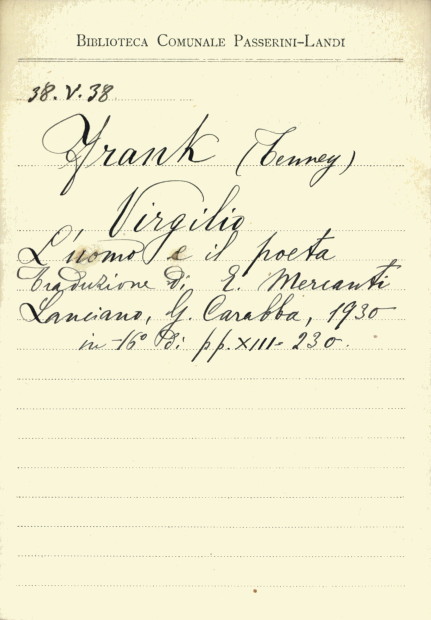 BIBLIOTECA COMUNALE PASSERINI-LANDI
38. V. 38
Frank (Tenney)
Virgilio
L'uomo e il poeta
Traduzione di E. Mercanti
Lanciano, G. Carabba, 1930
in-16º di pp. XIII-230.